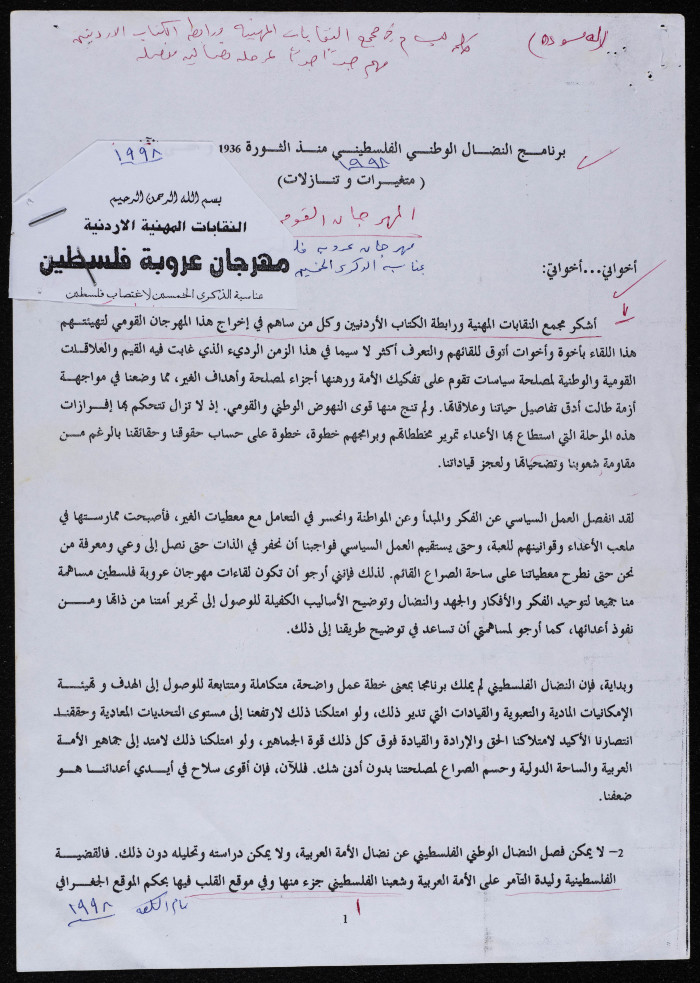 (المسودة)
كلمة في مجمع النقابات المهنية ورابطة الكتاب الأردنيين
مهم جداً جداً لمرحلة نضالية مفصلة
برنامج النضال الوطني الفلسطيني منذ الثورة 1936
١٩٩٨
(متغيرات و تنازلات)
١٩٩٨
بسم الله الرحمن الرحيم
النقابات المهنية الاردنية
مهرجان عروبة فلسطين
بمناسبة الذكرى الخمسين لاغتصاب فلسطين
المهرجان القومي
مهرجان عروبة
بمناسبة الذكرى
أخواني...أخواتي:
أشكر مجمع النقابات المهنية ورابطة الكتاب الأردنيين وكل من ساهم في إخراج هذا المهرجان القومي لتهيئتهم
هذا اللقاء بأخوة وأخوات أتوق للقائهم والتعرف أكثر لا سيما في هذا الزمن الرديء الذي غابت فيه القيم والعلاقات
القومية والوطنية لمصلحة سياسات تقوم على تفكيك الأمة ورهنها أجزاء لمصلحة وأهداف الغير، مما وضعنا في مواجهة
أزمة طالت أدق تفاصيل حياتنا وعلاقاتها. ولم تنج منها قوى النهوض الوطني والقومي. إذ لا تزال تتحكم بها إفرازات
هذه المرحلة التي استطاع بها الأعداء تمرير مخططاتهم وبرامجهم خطوة، خطوة على حساب حقوقنا وحقائقنا بالرغم من
مقاومة شعوبنا وتضحياتها ولعجز قياداتنا.
لقد انفصل العمل السياسي عن الفكر والمبدأ وعن المواطنة وانحسر في التعامل مع معطيات الغير، فأصبحت ممارستها في
ملعب الأعداء وقوانينهم للعبة، وحتى يستقيم العمل السياسي فواجبنا أن نحفر في الذات حتى نصل إلى وعي ومعرفة من
نحن حتى نطرح معطياتنا على ساحة الصراع القائم. لذلك فإنني أرجو أن تكون لقاءات مهرجان عروبة فلسطين مساهمة
منا جميعا لتوحيد الفكر والأفكار والجهد والنضال وتوضيح الأساليب الكفيلة للوصول إلى تحرير أمتنا من ذاتها ومن
نفوذ أعدائها، كما أرجو لمساهمتي أن تساعد في توضيح طريقنا إلى ذلك.
وبداية، فإن النضال الفلسطيني لم يملك برنامجا بمعنى خطة عمل واضحة، متكاملة ومتتابعة للوصول إلى الهدف و تهيئة
الإمكانيات المادية والتعبوية والقيادات التي تدير ذلك، ولو امتلكنا ذلك لارتفعنا إلى مستوى التحديات المعادية وحققنا
انتصارنا الأكيد لامتلاكنا الحق والإرادة والقيادة فوق كل ذلك قوة الجماهير، ولو امتلكنا ذلك لامتد إلى جماهير الأمة
العربية والساحة الدولية وحسم الصراع لمصلحتنا بدون أدنى شك. فللآن، فإن أقوى سلاح في أيدي أعدائنا هو
ضعفنا.
2– لا يمكن فصل النضال الوطني الفلسطيني عن نضال الأمة العربية، ولا يمكن دراسته وتحليله دون ذلك. فالقضية
الفلسطينية وليدة التآمر على الأمة العربية وشعبنا الفلسطيني جزء منها وفي موقع القلب فيها بحكم الموقع الجغرافي
١٩٩٨
1
١